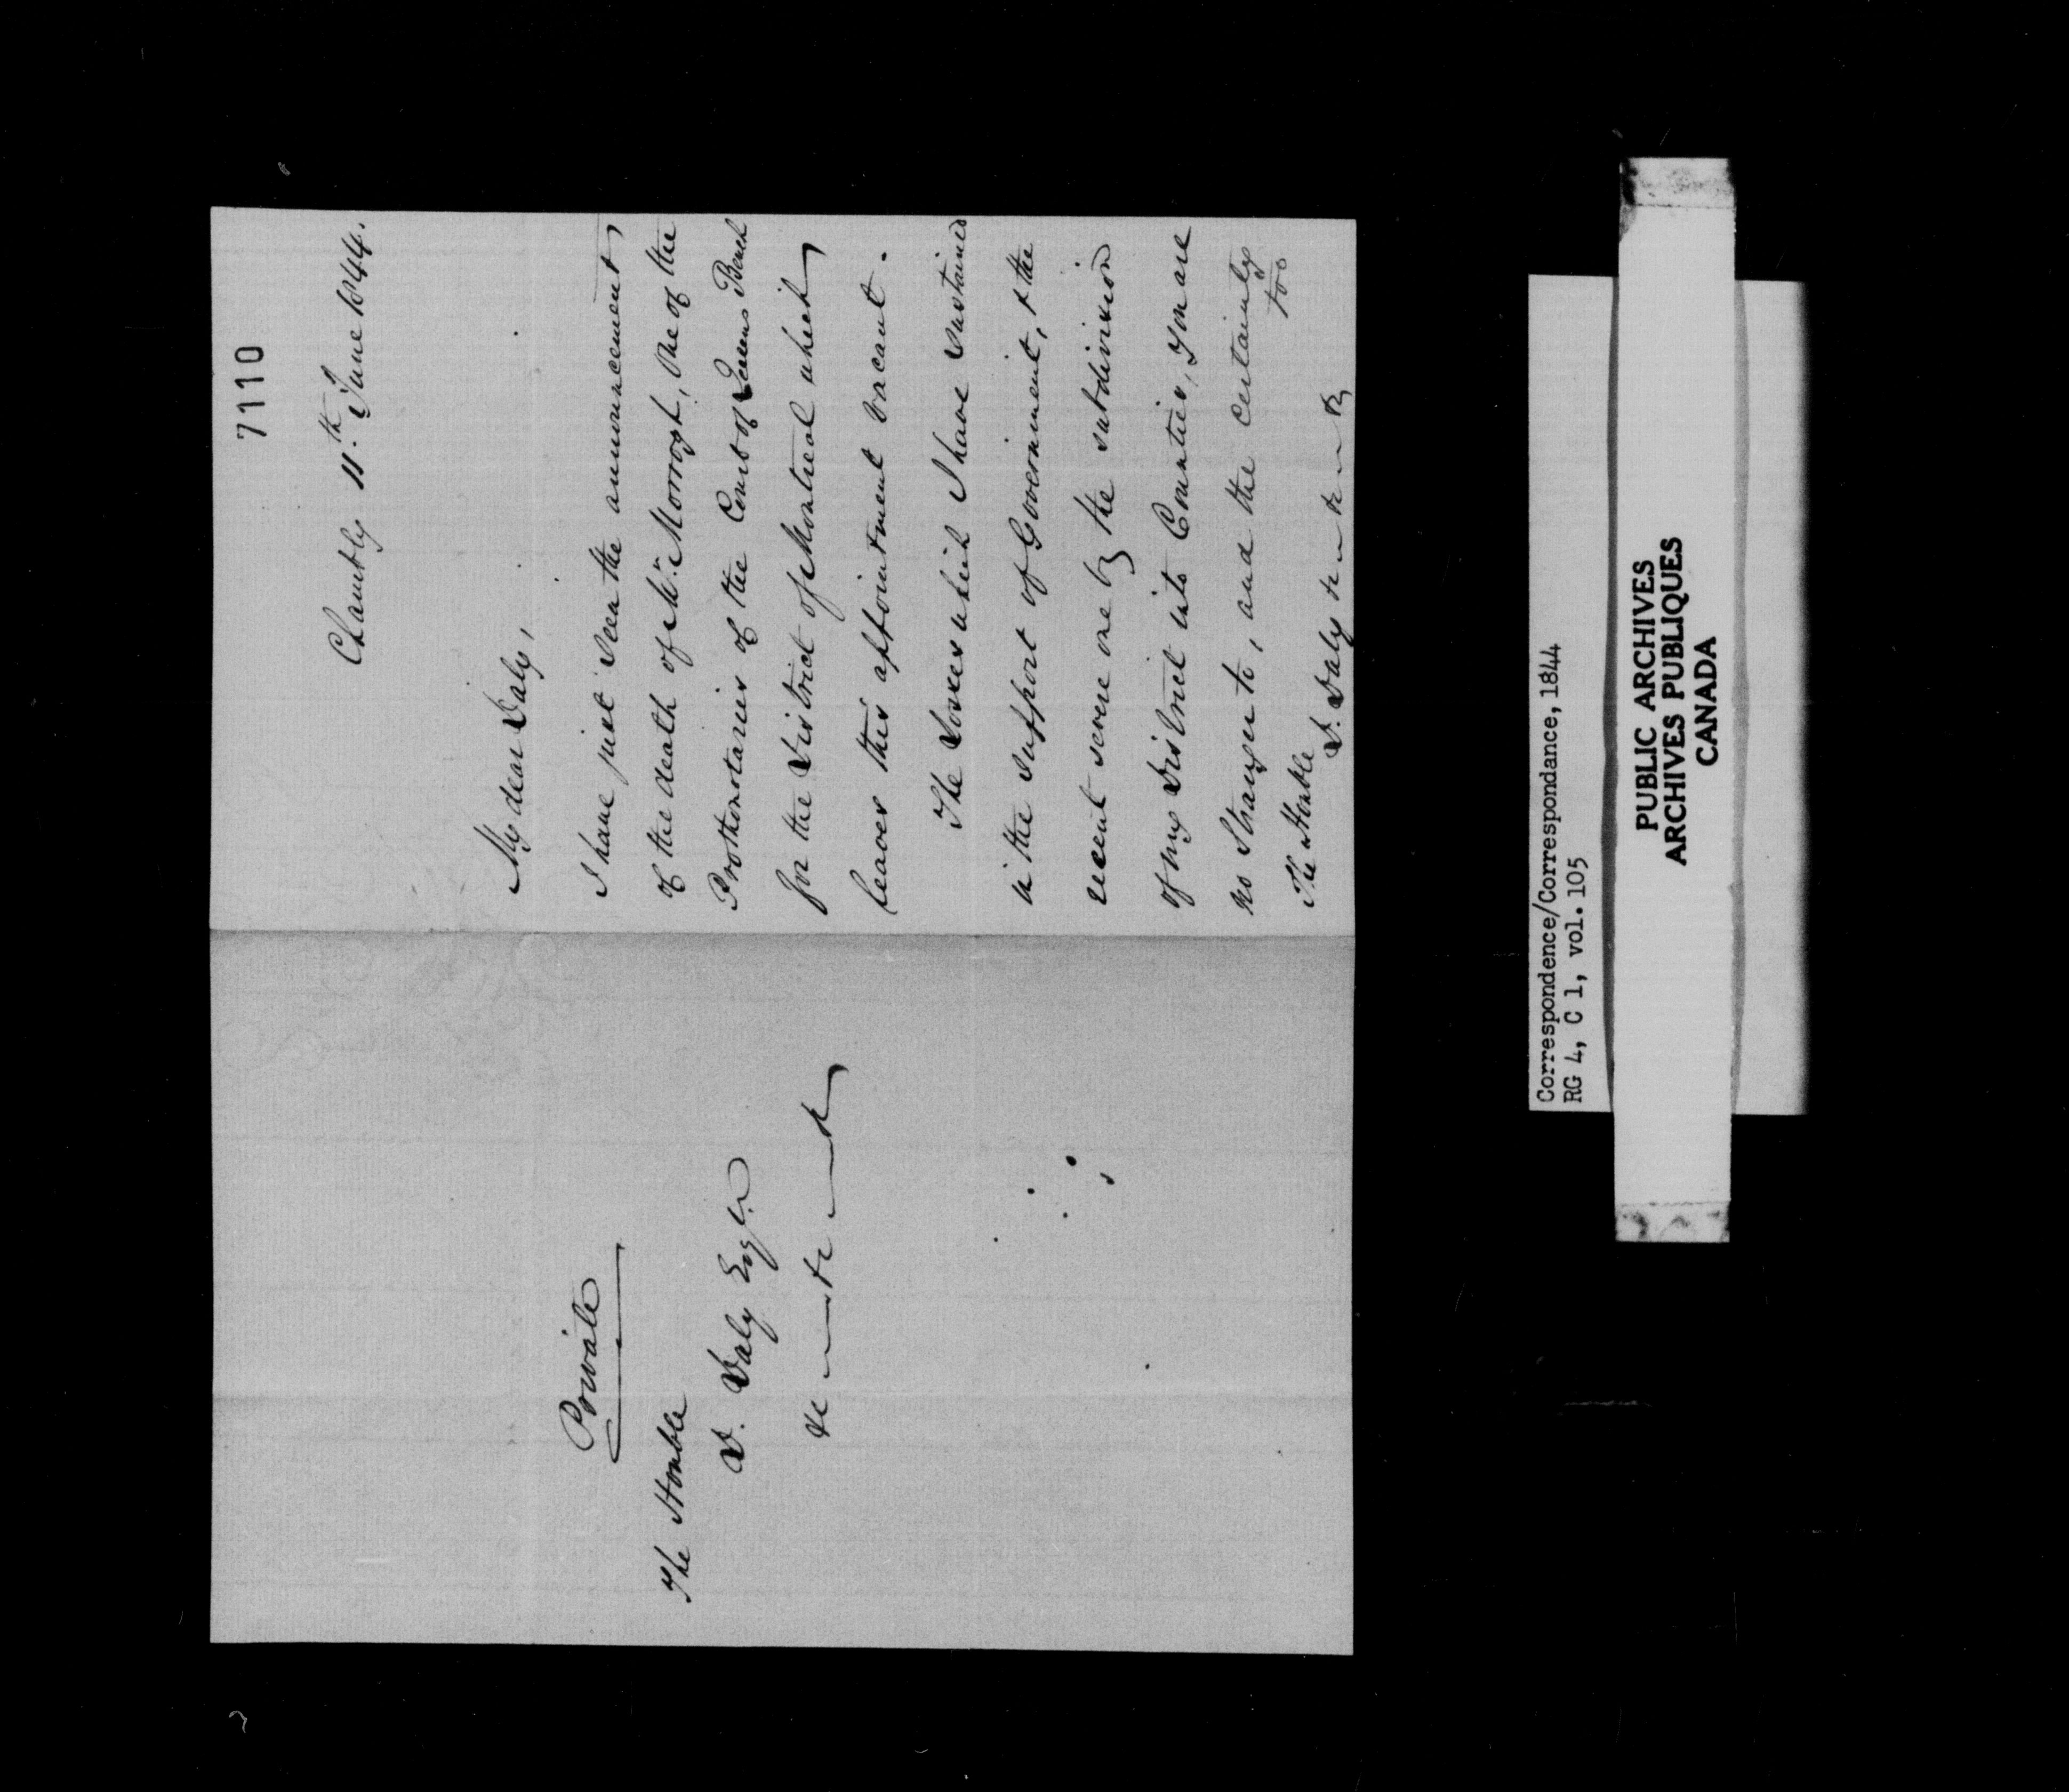 7110
Chambly 11.th June 1844.
My dear Daly,
I have just seen the announcement
of the death of Mr. Morrogh, one of the
Prothonotaries of the Court of Queens Bench
for the District of Montreal which
leaves this appointment vacant.
The Losses which I have sustained
in the support of Government, & the
recent severe one by the subdivision
of my District into Counties, you are
no Stranger to, and the certainly
too
The Honble
D. Daly &c &c &c
Private
The Honble
D. Daly Esqr.
&c &c &c
Correspondence/Correspondance, 1844
RG 4, C 1, vol. 105
PUBLIC ARCHIVES
ARCHIVES PUBLIQUES
CANADA